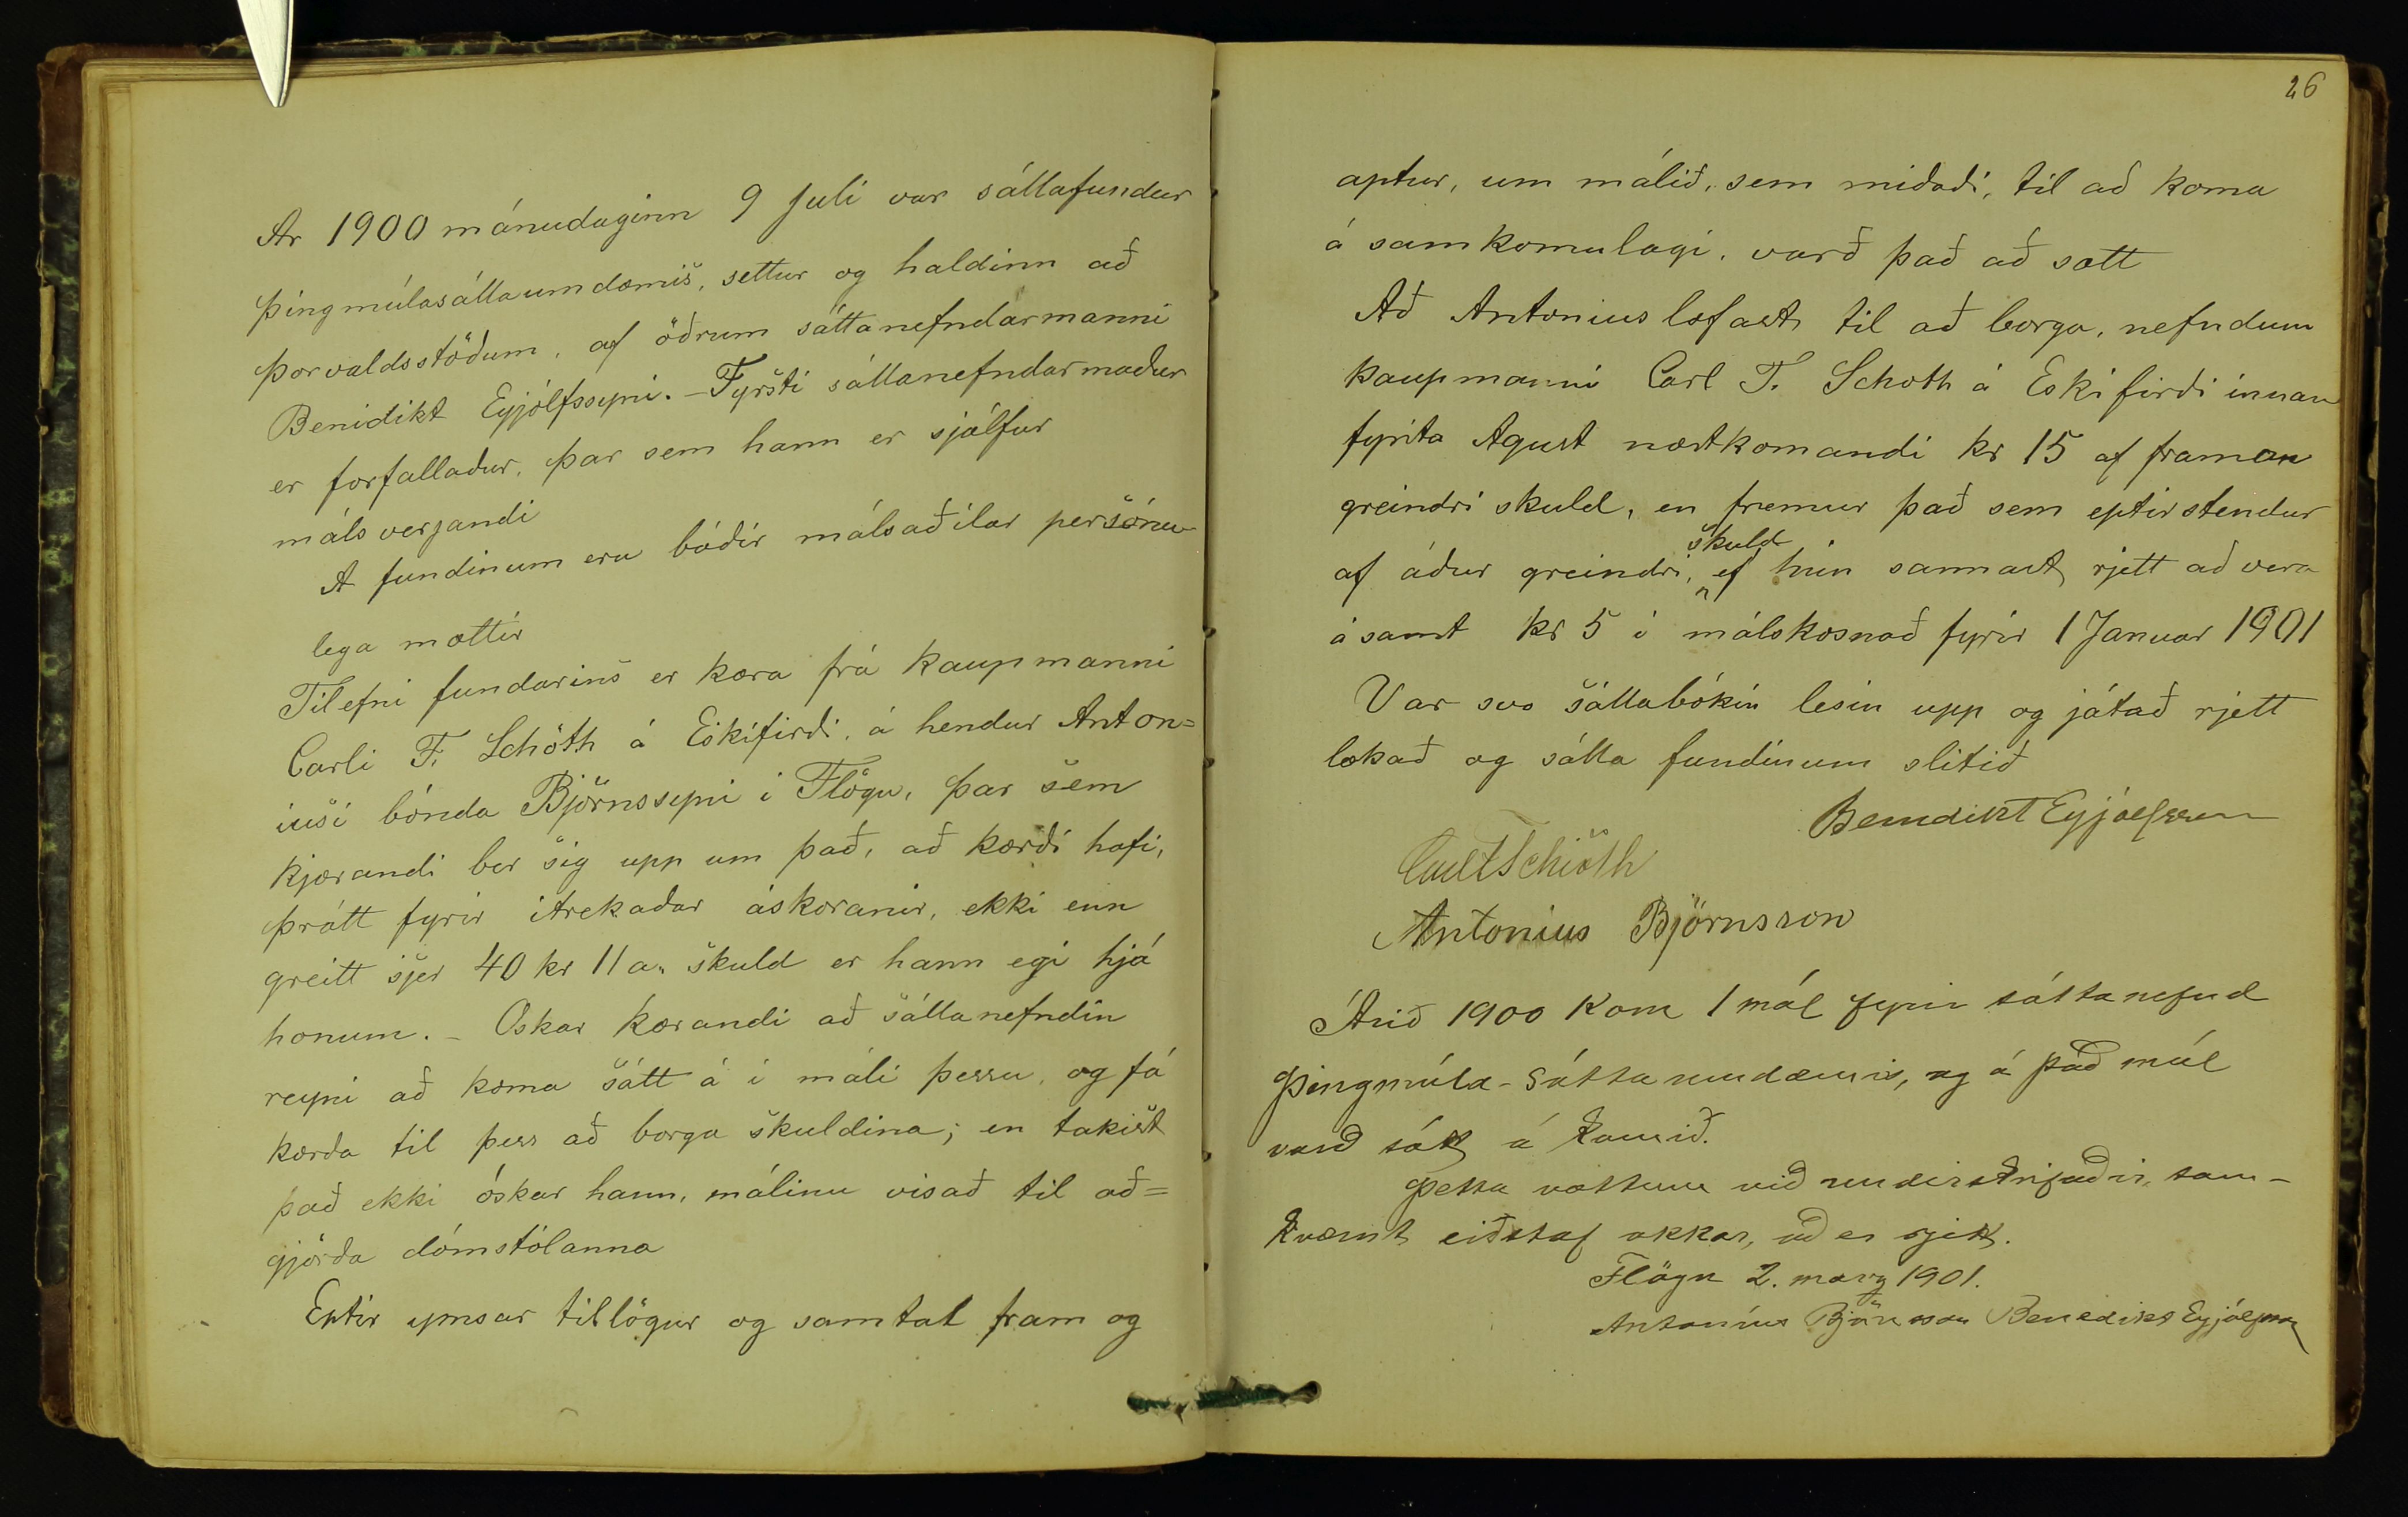 Ar 1900 mánudaginn 9 Juli var sáttafundur
Þingmúlasáttaumdæmis, settur og haldinn að
Þorvaldsstöðum, af öðrum sáttanefndarmanni
Benidikt Eyjólfssyni. - Fyrsti sáttanefndarmaður
er forfallaður, þar sem hann er sjálfur
málsverjandi
A fundinum eru báðir málsaðilar persónu-
lega mættir
Tilefni fundarins er kæra frá kaupmanni
Carli F. Schöth á Eskifirði, á hendur Anton=
iusi bónda Björnssyni i Flögu, þar sem
kjærandi ber sig upp um það, að kærði hafi,
þrátt fyrir itrekaðar áskoranir, ekki enn
greitt sjer 40 kr 11 a. skuld er hann egi hjá
honum. - Oskar kærandi að sáttanefndin
reyni að koma sátt á i máli þessu, og fá
kærða til þess að borga skuldina; en takist
það ekki óskar hann, málinu visað til að=
gjörða dómstólanna
Eptir ymsar tillögur og samtal fram og
26
aptur, um málið, sem miðaði, til að koma
á samkomulagi, varð það að sætt
Að Antonius lofast til að borga, nefndum
kaupmanni Carl F. Schoth á Eskifirði innan
fyrsta Agust næstkomandi kr 15 af framan
greindri skuld, en fremur það sem eptirstendur
skuld
af áður greindri, ef hún sannast rjett að vera
ásamt kr 5 i málskosnað fyrir 1 Januar 1901
Var svo sáttabókin lesin upp og játað rjett
lokað og sátta fundinum slitið
Benedikt Eyjólfsson
Carl F Schiöth
Antonius Björnsson
Árið 1900 kom 1 mál fyrir sáttanefnd
Þingmúla-Sáttaumdæmis, og á það mál
varð sátt á komið.
Þetta vottum við undirskrifaðir, sam-
kvæmt eiðstaf okkar, að er rjett.
Flögu 2. marz 1901.
Antoníus Björnsson Benedikt Eyjólfsson